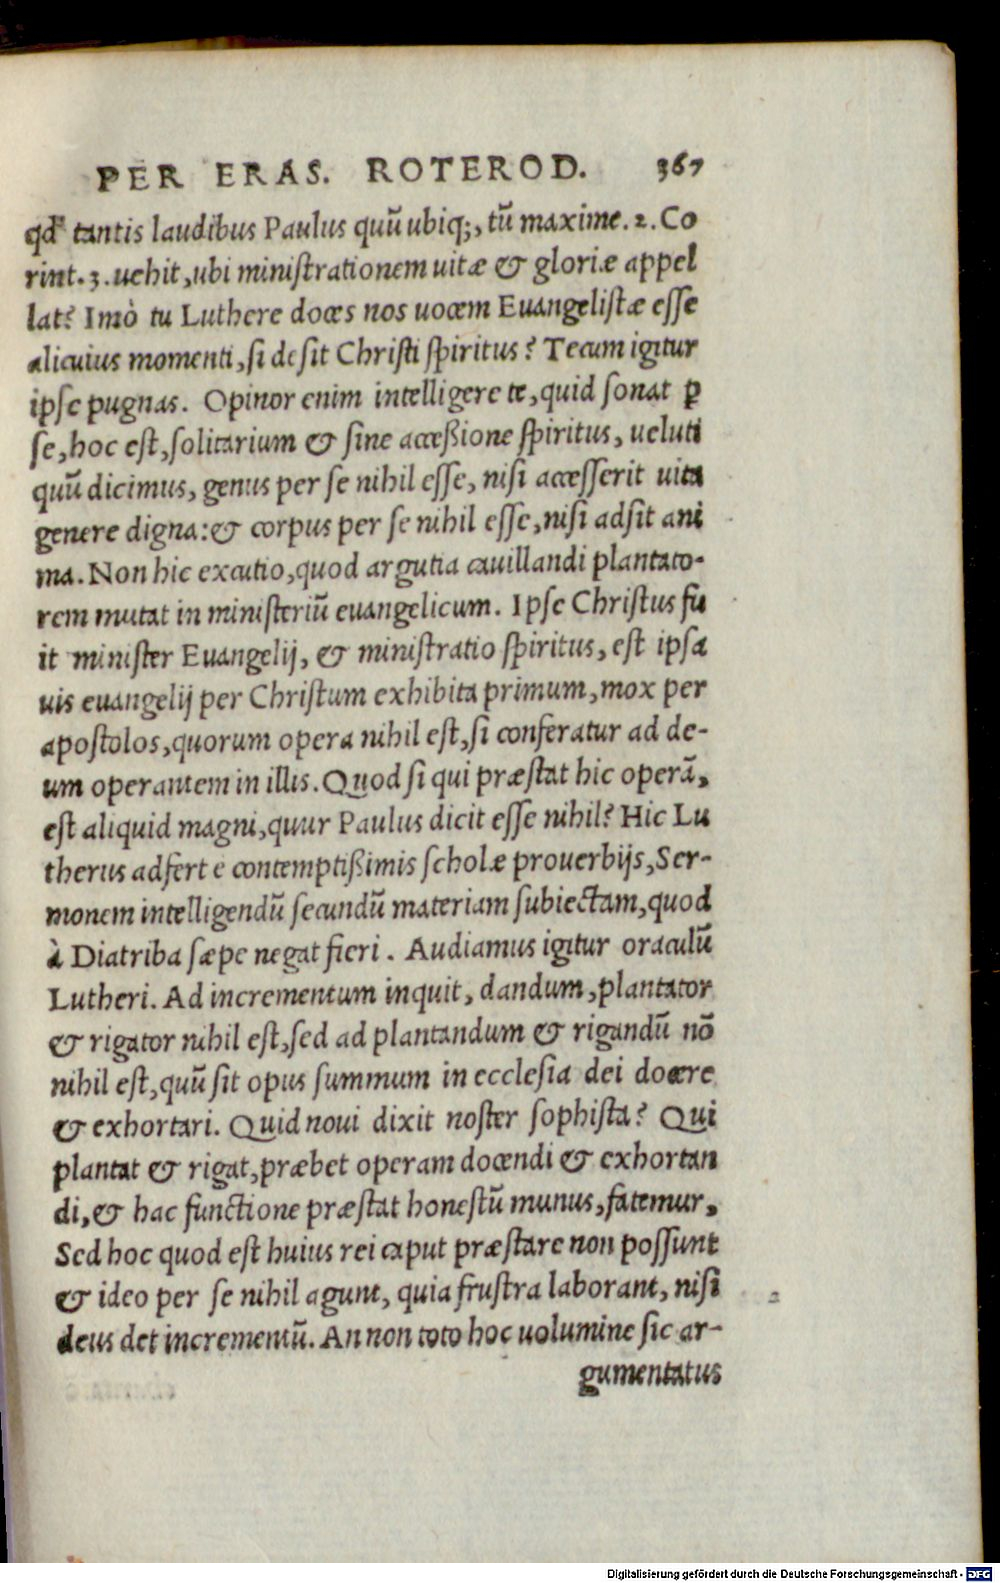 PER ERAS. ROTEROD. 367
qđ tantis laudibus Paulus quũ ubiq;, tũ maxime. 2. Co
rint. 3. uehit, ubi ministrationem uitæ & gloriæ appel
lat? Imò tu Luthere doces nos uocem Euangelistæ esse
alicuius momenti, si desit Christi spiritus? Tecum igitur
ipse pugnas. Opinor enim intelligere te, quid sonat ꝑ
se, hoc est, solitarium & sine acceßione spiritus, ueluti
quũ dicimus, genus per se nihil esse, nisi accesserit uita
genere digna: & corpus per se nihil esse, nisi adsit ani
ma. Non hic excutio, quod argutia cauillandi plantato-
rem mutat in ministeriũ euangelicum. Ipse Christus fu
it minister Euangelij, & ministratio spiritus, est ipsa
uis euangelij per Christum exhibita primum, mox per
apostolos, quorum opera nihil est, si conferatur ad de-
um operantem in illis. Quod si qui præstat hic operã,
est aliquid magni, quur Paulus dicit esse nihil? Hic Lu
therus adfert e contemptißimis scholæ prouerbijs, Ser-
monem intelligendũ secundũ materiam subiectam, quod
à Diatriba sæpe negat fieri. Audiamus igitur oraculũ
Lutheri. Ad incrementum inquit, dandum, plantator
& rigator nihil est, sed ad plantandum & rigandũ nõ
nihil est, quũ sit opus summum in ecclesia dei docere
& exhortari. Quid noui dixit noster sophista? Qui
plantat & rigat, præbet operam docendi & exhortan
di, & hac functione præstat honestũ munus, fatemur,
Sed hoc quod est huius rei caput præstare non possunt
& ideo per se nihil agunt, quia frustra laborant, nisi
deus det incrementũ. An non toto hoc uolumine sic ar-
gumentatus
Digitalisierung gefördert durch die Deutsche Forschungsgemeinschaft - DFG